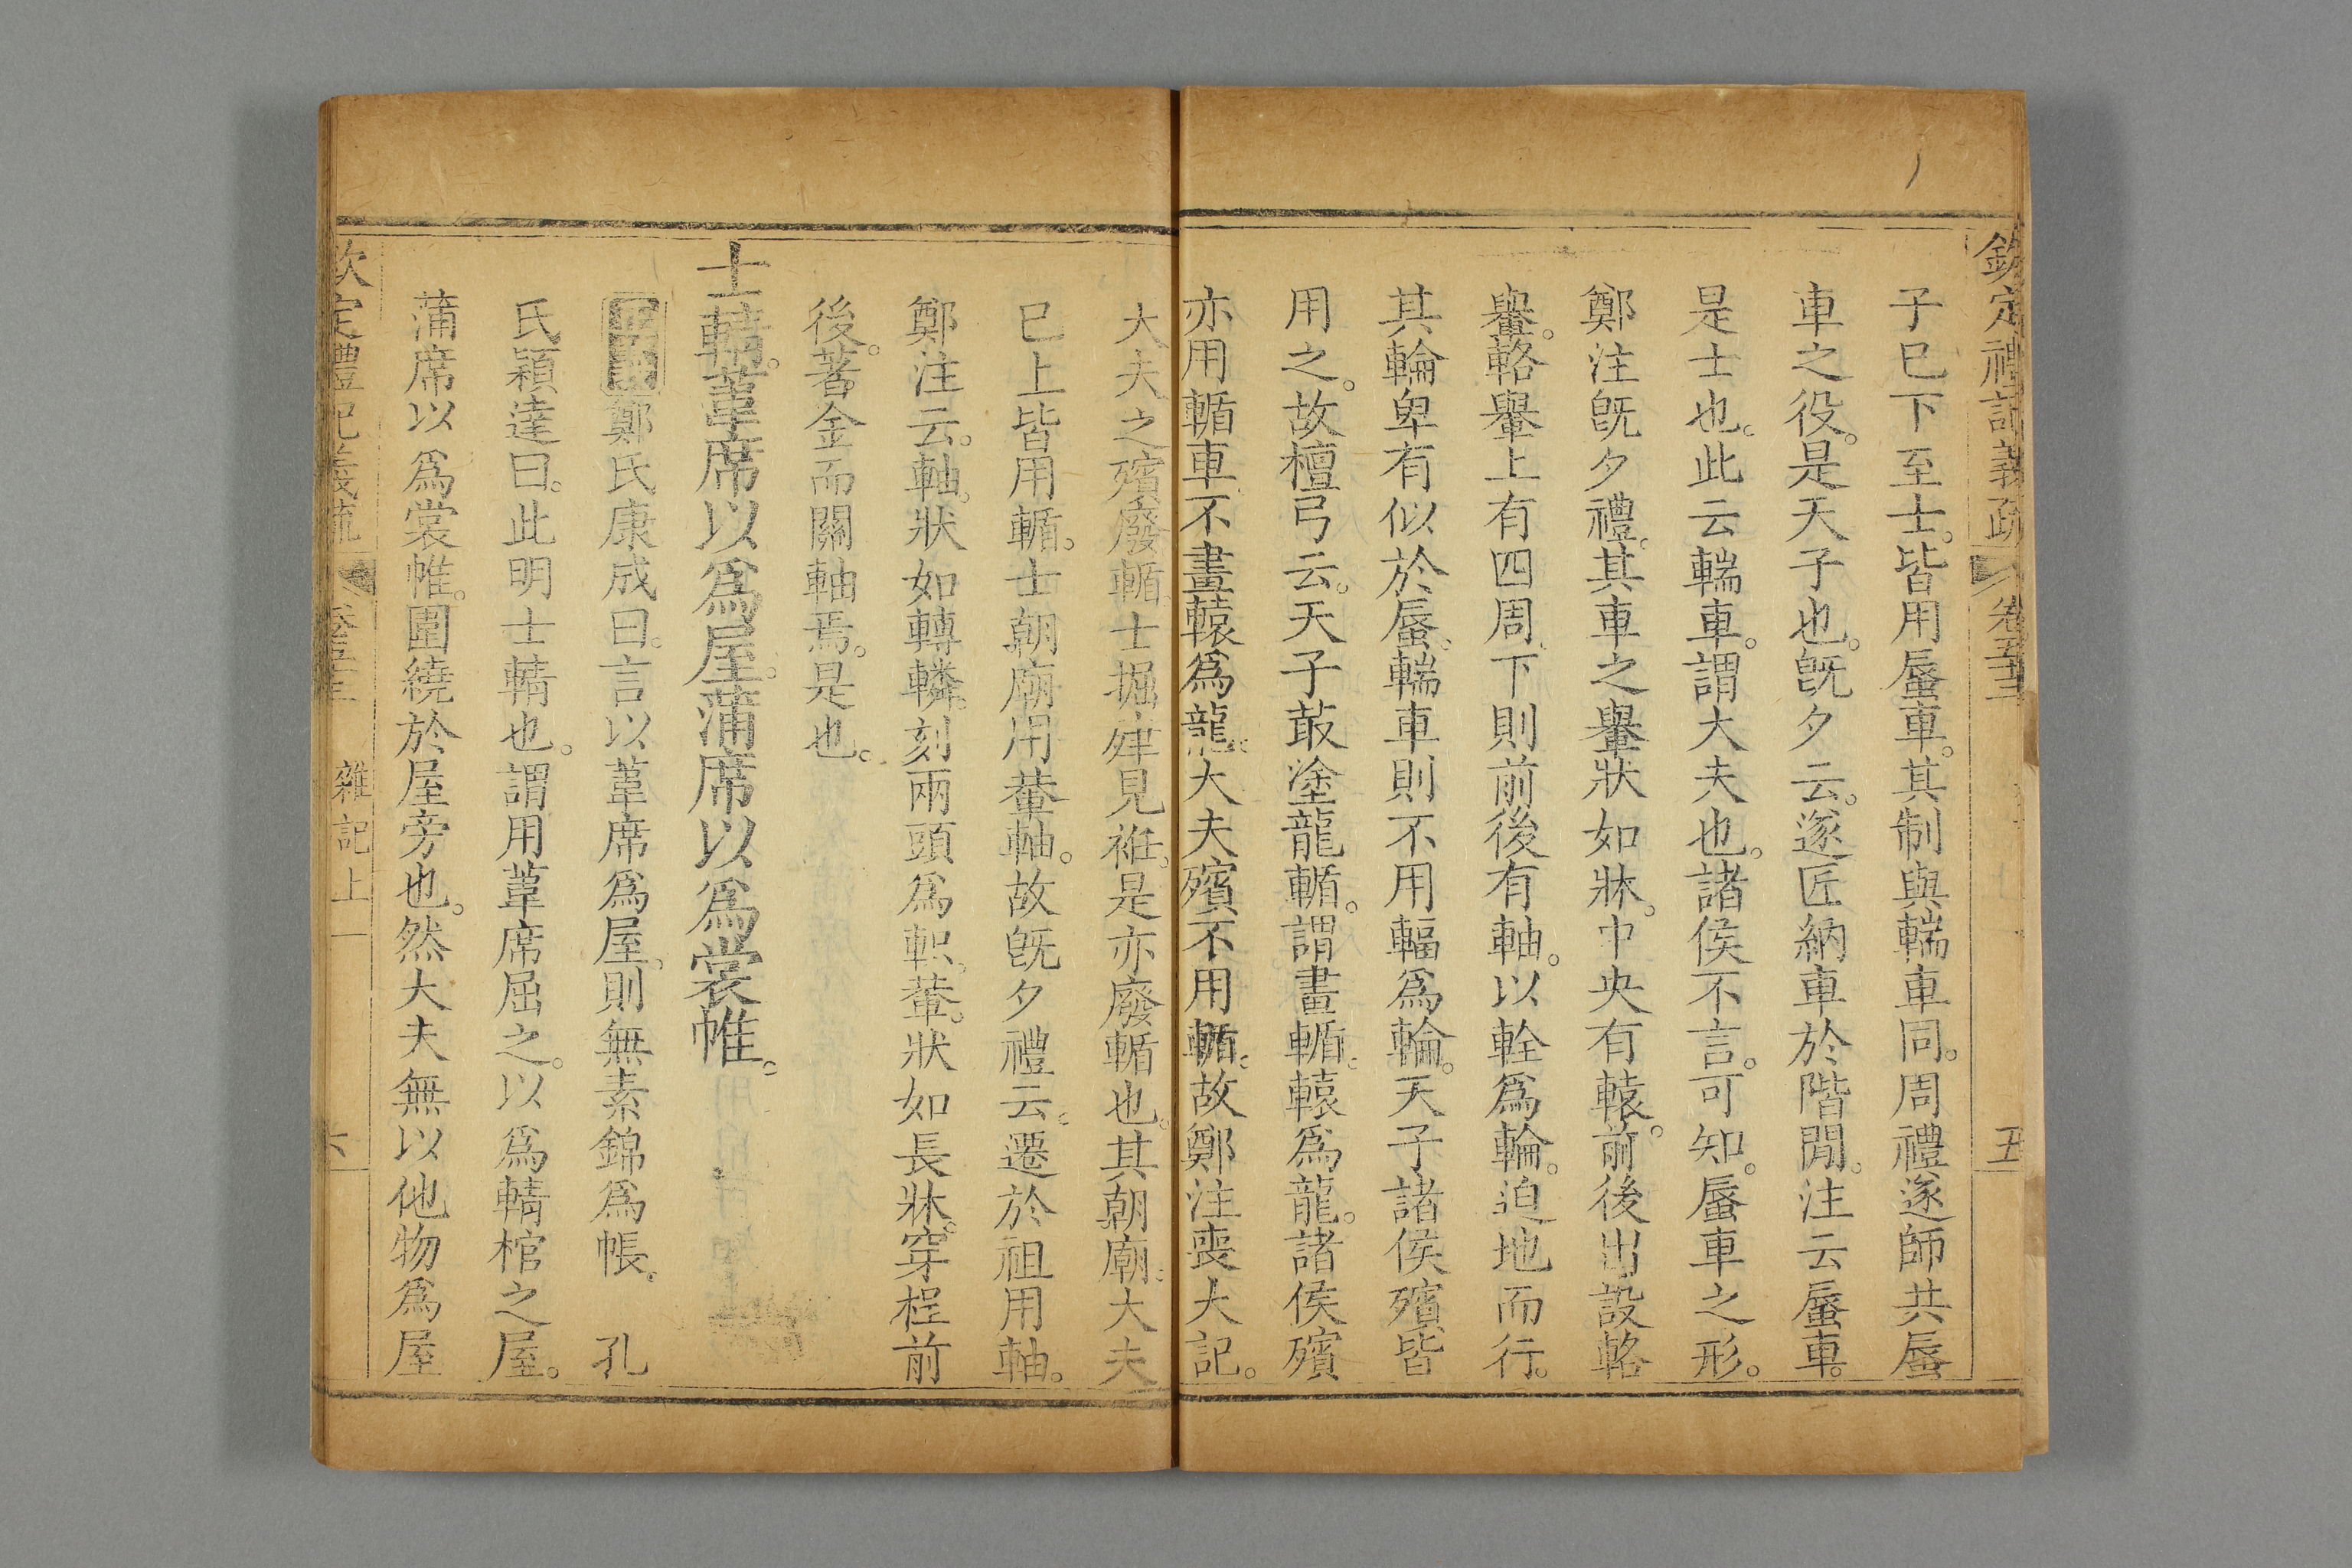 欽定禮記義疏 卷五十三 五
子巳下至士。皆用蜃車。其制與輲車同。周禮遂師共蜃
車之役。是天子也。旣夕云。遂匠納車於階閒。注云蜃車。
是士也。此云輲車。謂大夫也。諸侯不言。可知。蜃車之形。
鄭注旣夕禮。其車之轝狀如牀。中央有轅。前後出設輅
轝。輅轝上有四周。下則前後有軸。以輇爲輪。迫地而行。
其輪卑有似於蜃。輲車則不用輻爲輪。天子諸侯殯皆
用之。故檀弓云。天子菆塗龍輴。謂畫輴轅爲龍。諸侯殯
亦用輴車不畫轅爲龍。大夫殯不用輴。故鄭注喪大記。
大夫之殯廢輴。士掘肂見衽。是亦廢輴也。其朝廟。大夫
巳上皆用輴。士朝廟用輁軸。故旣夕禮云。遷於祖用軸。
鄭注云。軸。狀如轉轔。刻兩頭爲軹。輁。狀如長牀。穿桯前
後。著金而關軸焉。是也。
士輤。葦席以爲屋。蒲席以爲裳帷。
鄭氏康成曰。言以葦席爲屋。則無素錦爲帳。 孔
氏穎達曰。此明士輤也。謂用葦席屈之。以爲輤棺之屋。
蒲席以爲裳帷。圍繞於屋旁也。然大夫無以他物爲屋
欽定禮記義疏 卷五十三 雜記上 六